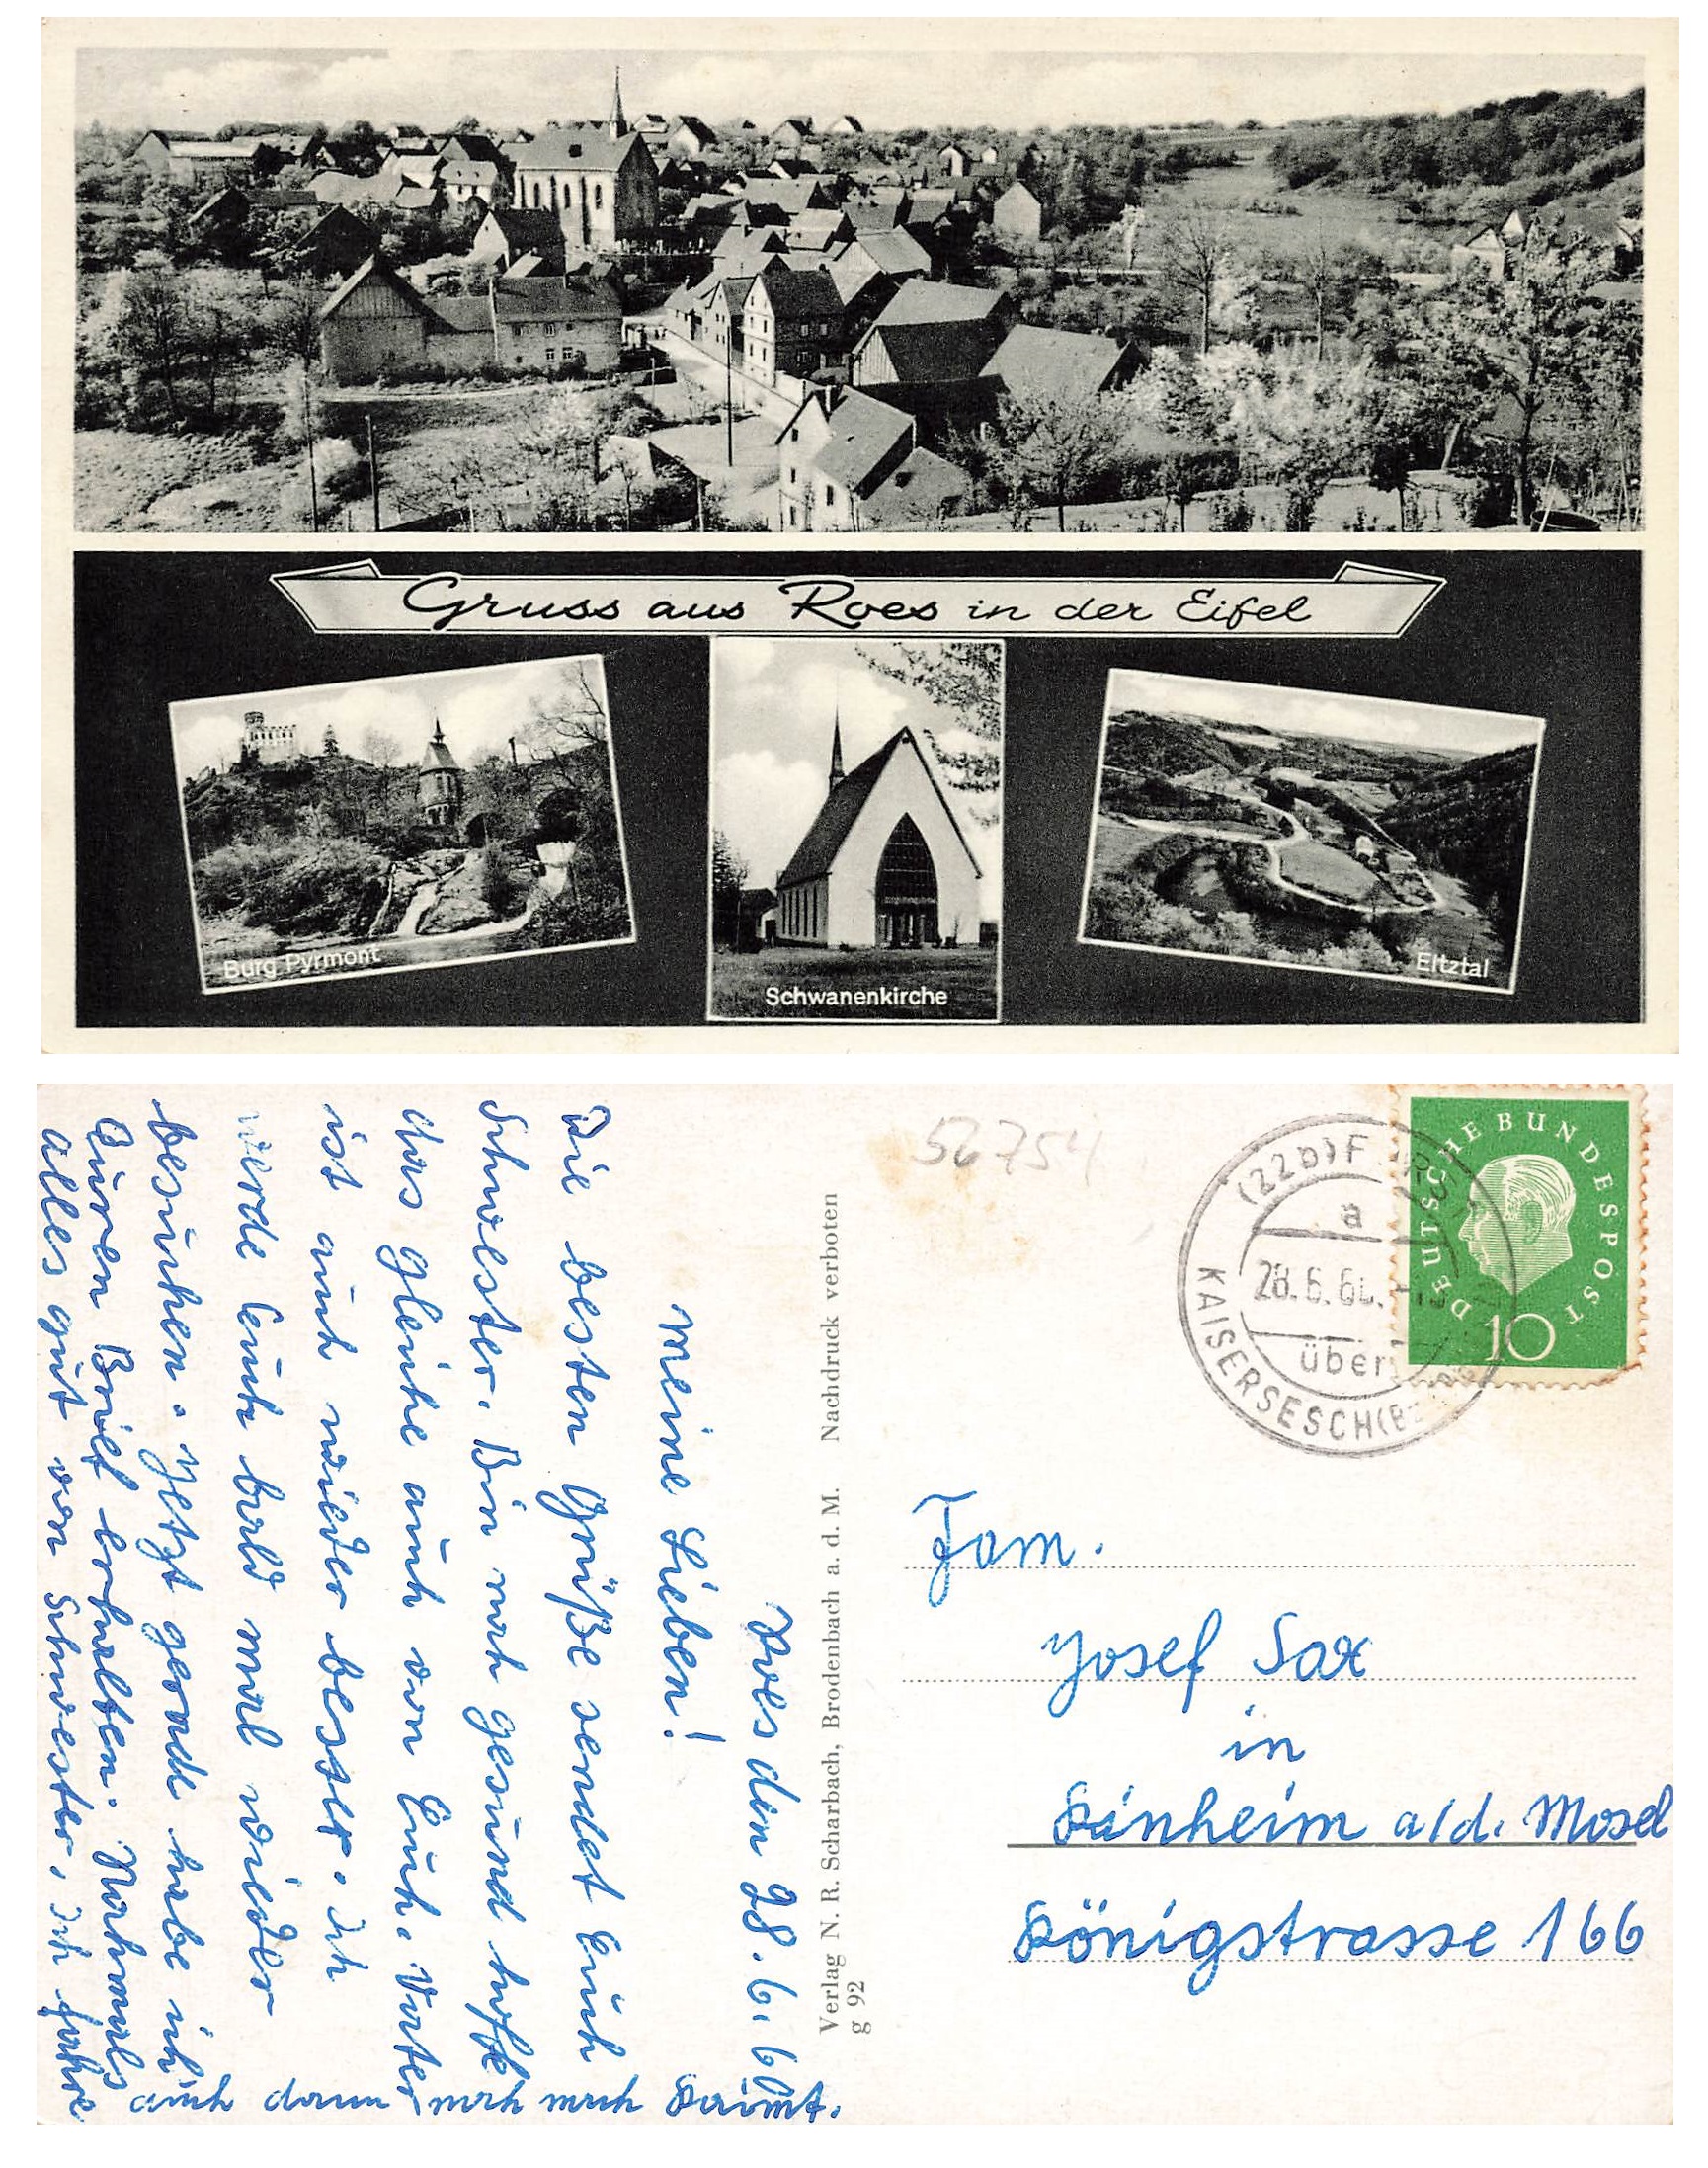 Gruss aus Roes in der Eifel
Burg Pyrmont
Schwanenkirche
Eltztal
56754
(22b) F
a
28.6.60.
über
KAISERSESCH (B
DEUTSCHE BUNDESPOST
10
Roes den 28.6.60
Meine Lieben!
Die besten Grüße sendet Euch
Schwester. Bin noch gesund hoffe
das gleiche auch von Euch. Vater
ist auch wieder besser. Ich
werde Euch bald mal wieder
besuchen. Jetzt gerade habe ich
Euren Brief erhalten. Nochmals
alles gut von Schwester, Ich fahre
auch dann noch nach
Verlag N. R. Scharbach, Brodenbach a. d. M. Nachdruck verboten
g 92
Fam.
Josef Sax
in
Kinheim a/d. Mosel
Königstrasse 166